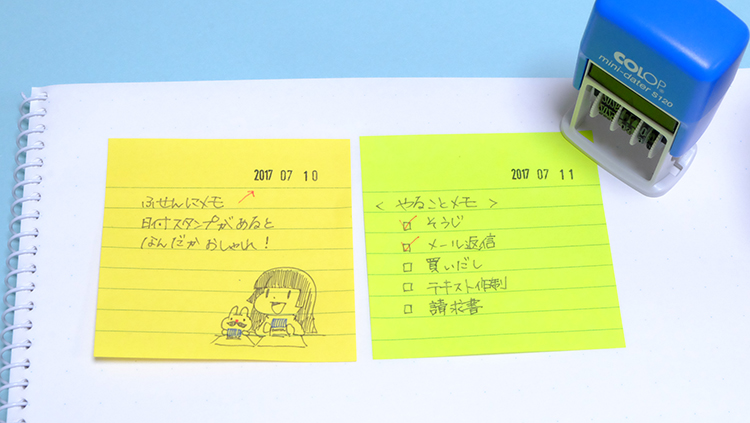 2017 07 10
ふせんにメモ
日付スタンプがあると
なんだかおしゃれ!
2017 07 11
< やることメモ >
そうじ
メール返信
買いだし
テキスト作制
請求書
COLOP
mini-dater S120